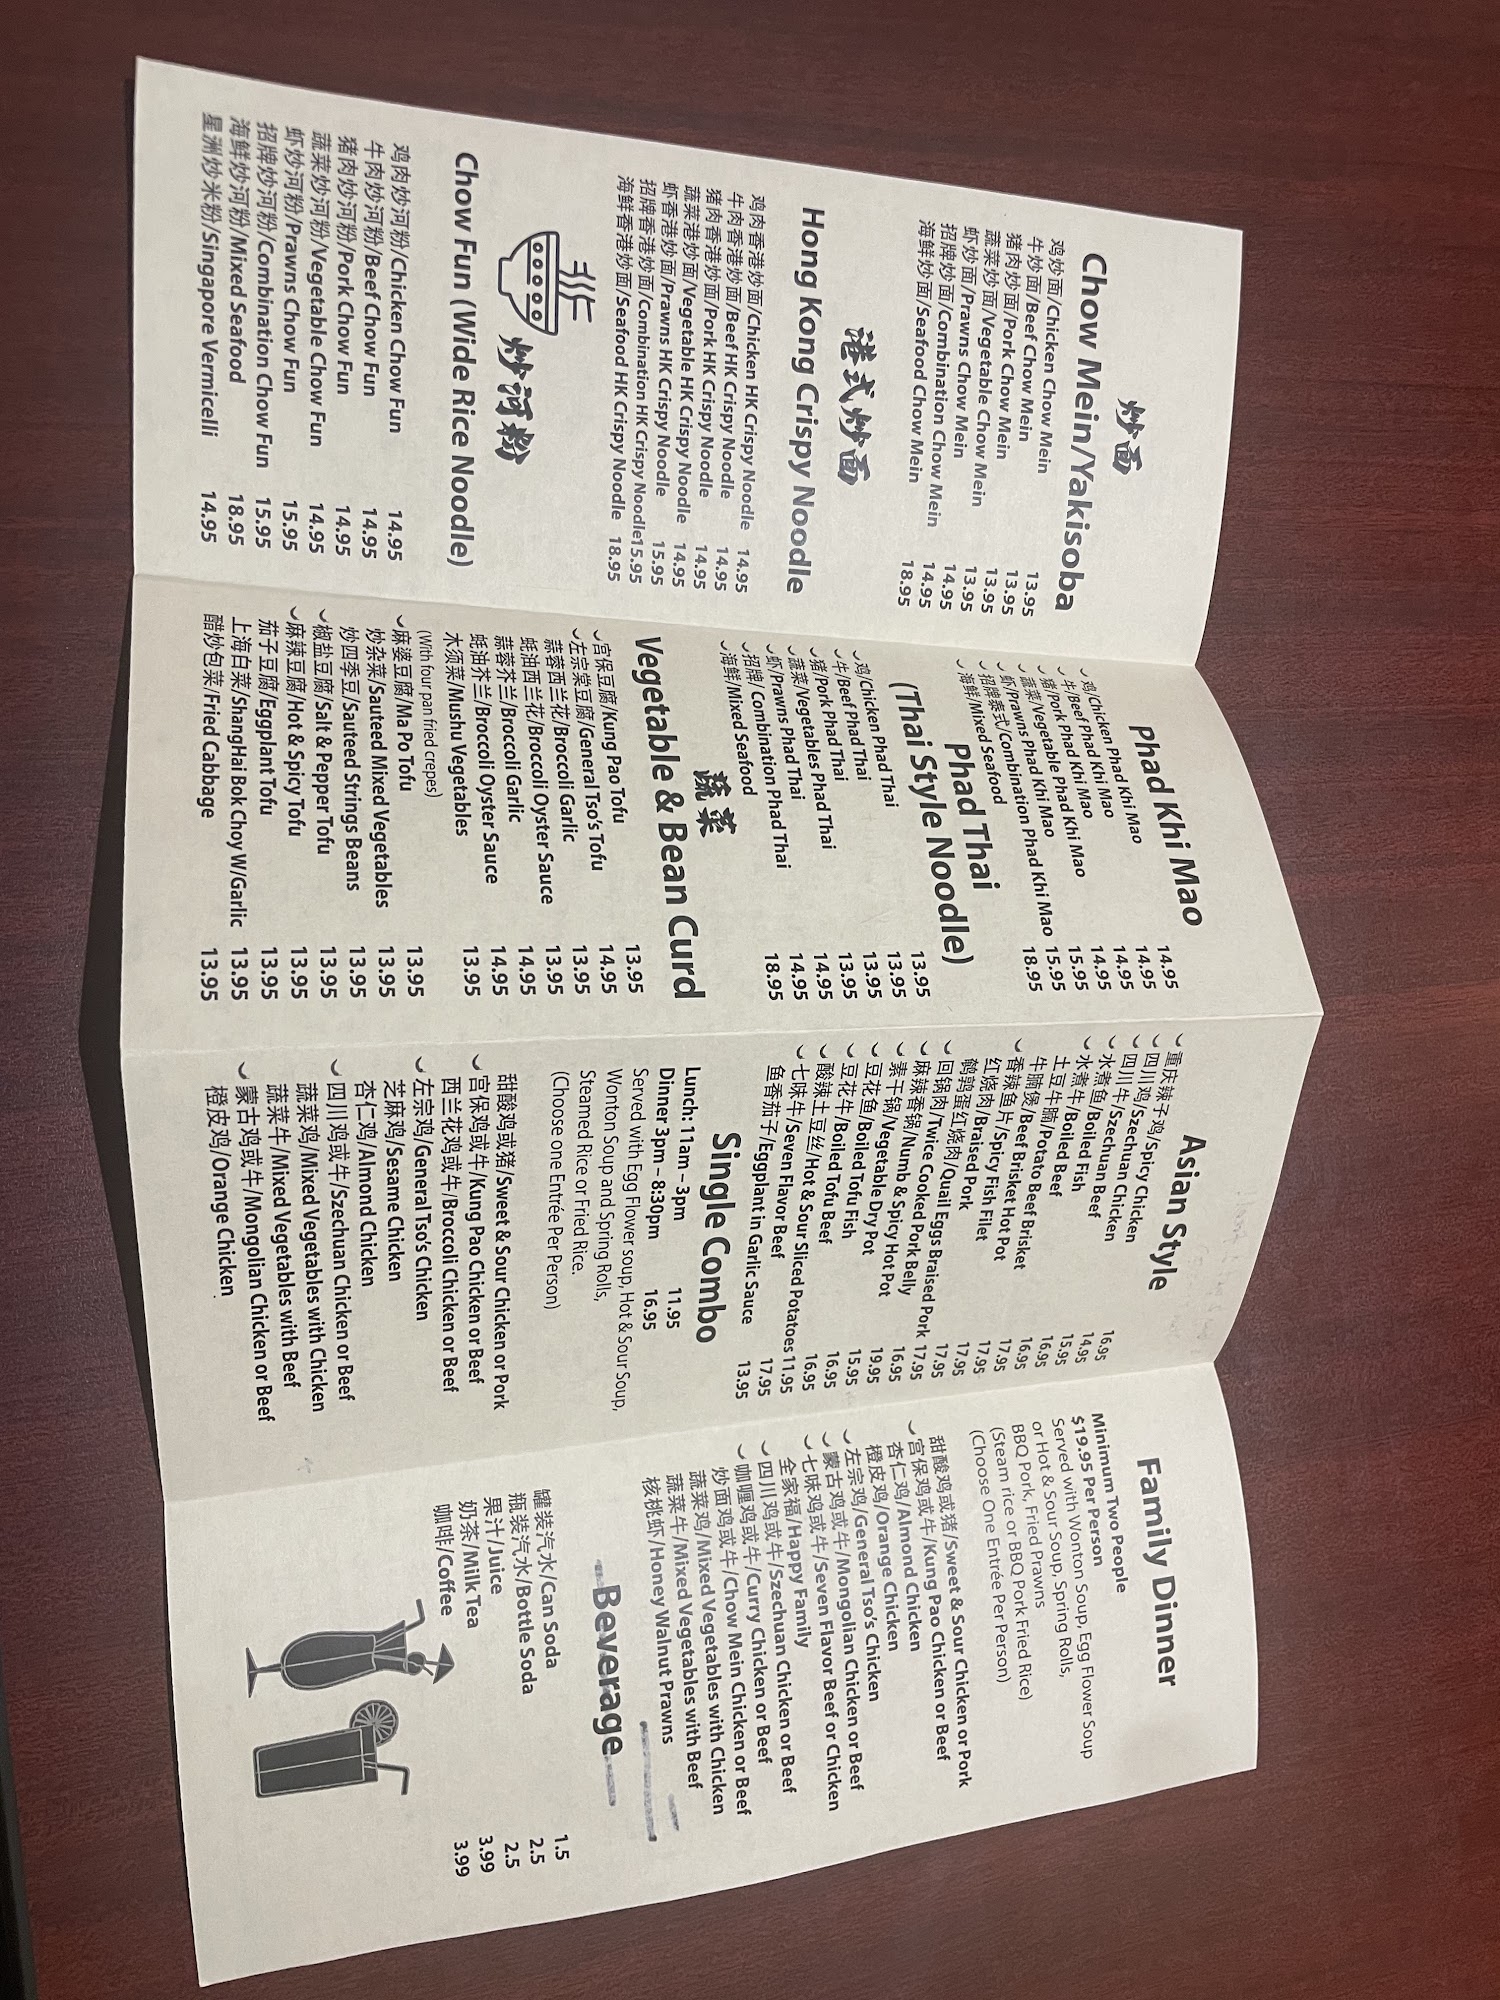 炒面
Chow Mein/Yakisoba
鸡炒面/Chicken Chow Mein 13.95
牛炒面/Beef Chow Mein 13.95
猪肉炒面/Pork Chow Mein 13.95
蔬菜炒面/Vegetable Chow Mein 13.95
虾炒面/Prawns Chow Mein 14.95
招牌炒面/Combination Chow Mein 14.95
海鲜炒面/Seafood Chow Mein 18.95
港式炒面
Hong Kong Crispy Noodle
鸡肉香港炒面/Chicken HK Crispy Noodle 14.95
牛肉香港炒面/Beef HK Crispy Noodle 14.95
猪肉香港炒面/Pork HK Crispy Noodle 14.95
蔬菜港炒面/Vegetable HK Crispy Noodle 14.95
虾香港炒面/Prawns HK Crispy Noodle 15.95
招牌香港炒面/Combination HK Crispy Noodle15.95
海鲜香港炒面/Seafood HK Crispy Noodle 18.95
炒河粉
Chow Fun (Wide Rice Noodle)
鸡肉炒河粉/Chicken Chow Fun 14.95
牛肉炒河粉/Beef Chow Fun 14.95
猪肉炒河粉/Pork Chow Fun 14.95
蔬菜炒河粉/Vegetable Chow Fun 14.95
虾炒河粉/Prawns Chow Fun 15.95
招牌炒河粉/Combination Chow Fun 15.95
海鲜炒河粉/Mixed Seafood 18.95
星洲炒米粉/Singapore Vermicelli 14.95
Phad Khi Mao
鸡/Chicken Phad Khi Mao 14.95
牛/Beef Phad Khi Mao 14.95
猪/Pork Phad Khi Mao 14.95
蔬菜/Vegetable Phad Khi Mao 14.95
虾/Prawns Phad Khi Mao 15.95
招牌泰式/Combination Phad Khi Mao 15.95
海鲜/Mixed Seafood 18.95
Phad Thai
(Thai Style Noodle)
鸡/Chicken Phad Thai 13.95
牛/Beef Phad Thai 13.95
猪/Pork Phad Thai 13.95
蔬菜/Vegetables Phad Thai 13.95
虾/Prawns Phad Thai 14.95
招牌/ Combination Phad Thai 14.95
海鲜/Mixed Seafood 18.95
蔬菜
Vegetable & Bean Curd
宫保豆腐/Kung Pao Tofu 13.95
左宗堂豆腐/General Tso's Tofu 14.95
蒜蓉西兰花/Broccoli Garlic 13.95
蚝油西兰花/Broccoli Oyster Sauce 13.95
蒜蓉芥兰/Broccoli Garlic 14.95
蚝油芥兰/Broccoli Oyster Sauce 14.95
木须菜/Mushu Vegetables 13.95
(With four pan fried crepes)
麻婆豆腐/Ma Po Tofu 13.95
炒杂菜/Sauteed Mixed Vegetables 13.95
炒四季豆/Sauteed Strings Beans 13.95
椒盐豆腐/Salt & Pepper Tofu 13.95
麻辣豆腐/Hot & Spicy Tofu 13.95
茄子豆腐/Eggplant Tofu 13.95
上海白菜/ShangHai Bok Choy W/Garlic 13.95
醋炒包菜/Fried Cabbage 13.95
Asian Style
重庆辣子鸡/Spicy Chicken 16.95
四川鸡/Szechuan Chicken 14.95
四川牛/Szechuan Chicken 15.95
水煮鱼/Boiled Fish 16.95
水煮牛/Boiled Beef 16.95
土豆牛腩/Potato Beef Brisket 17.95
牛腩煲/Beef Brisket Hot Pot 17.95
香辣鱼片/Spicy Fish Filet 17.95
红烧肉/Braised Pork 17.95
鹌鹑蛋红烧肉/Quail Eggs Braised Pork 17.95
回锅肉/Twice Cooked Pork Belly 16.95
麻辣香锅/Numb & Spicy Hot Pot 19.95
素干锅/Vegetable Dry Pot 15.95
豆花鱼/Boiled Tofu Fish 16.95
豆花牛/Boiled Tofu Beef 16.95
酸辣土豆丝/Hot & Sour Sliced Potatoes 11.95
七味牛/Seven Flavor Beef 17.95
鱼香茄子/Eggplant in Garlic Sauce 13.95
Single Combo
Lunch: 11am – 3pm 11.95
Dinner 3pm – 8:30pm 16.95
Served with Egg Flower soup, Hot & Sour Soup,
Wonton Soup and Spring Rolls,
Steamed Rice or Fried Rice.
(Choose one Entrée Per Person)
甜酸鸡或猪/Sweet & Sour Chicken or Pork
宫保鸡或牛/Kung Pao Chicken or Beef
西兰花鸡或牛/Broccoli Chicken or Beef
左宗鸡/General Tso's Chicken
芝麻鸡/Sesame Chicken
杏仁鸡/Almond Chicken
四川鸡或牛/Szechuan Chicken or Beef
蔬菜鸡/Mixed Vegetables with Chicken
蔬菜牛/Mixed Vegetables with Beef
蒙古鸡或牛/Mongolian Chicken or Beef
橙皮鸡/Orange Chicken
Family Dinner
Minimum Two People
$19.95 Per Person
Served with Wonton Soup, Egg Flower Soup
or Hot & Sour Soup, Spring Rolls,
BBQ Pork, Fried Prawns
(Steam rice or BBQ Pork Fried Rice)
(Choose One Entrée Per Person)
甜酸鸡或猪/Sweet & Sour Chicken or Pork
宫保鸡或牛/Kung Pao Chicken or Beef
杏仁鸡/Almond Chicken
橙皮鸡/Orange Chicken
左宗鸡/General Tso's Chicken
蒙古鸡或牛/Mongolian Chicken or Beef
七味鸡或牛/Seven Flavor Beef or Chicken
全家福/Happy Family
四川鸡或牛/Szechuan Chicken or Beef
咖喱鸡或牛/Curry Chicken or Beef
炒面鸡或牛/Chow Mein Chicken or Beef
蔬菜鸡/Mixed Vegetables with Chicken
蔬菜牛/Mixed Vegetables with Beef
核桃虾/Honey Walnut Prawns
Beverage
罐装汽水/Can Soda 1.5
瓶装汽水/Bottle Soda 2.5
果汁/Juice 2.5
奶茶/Milk Tea 3.99
咖啡/Coffee 3.99